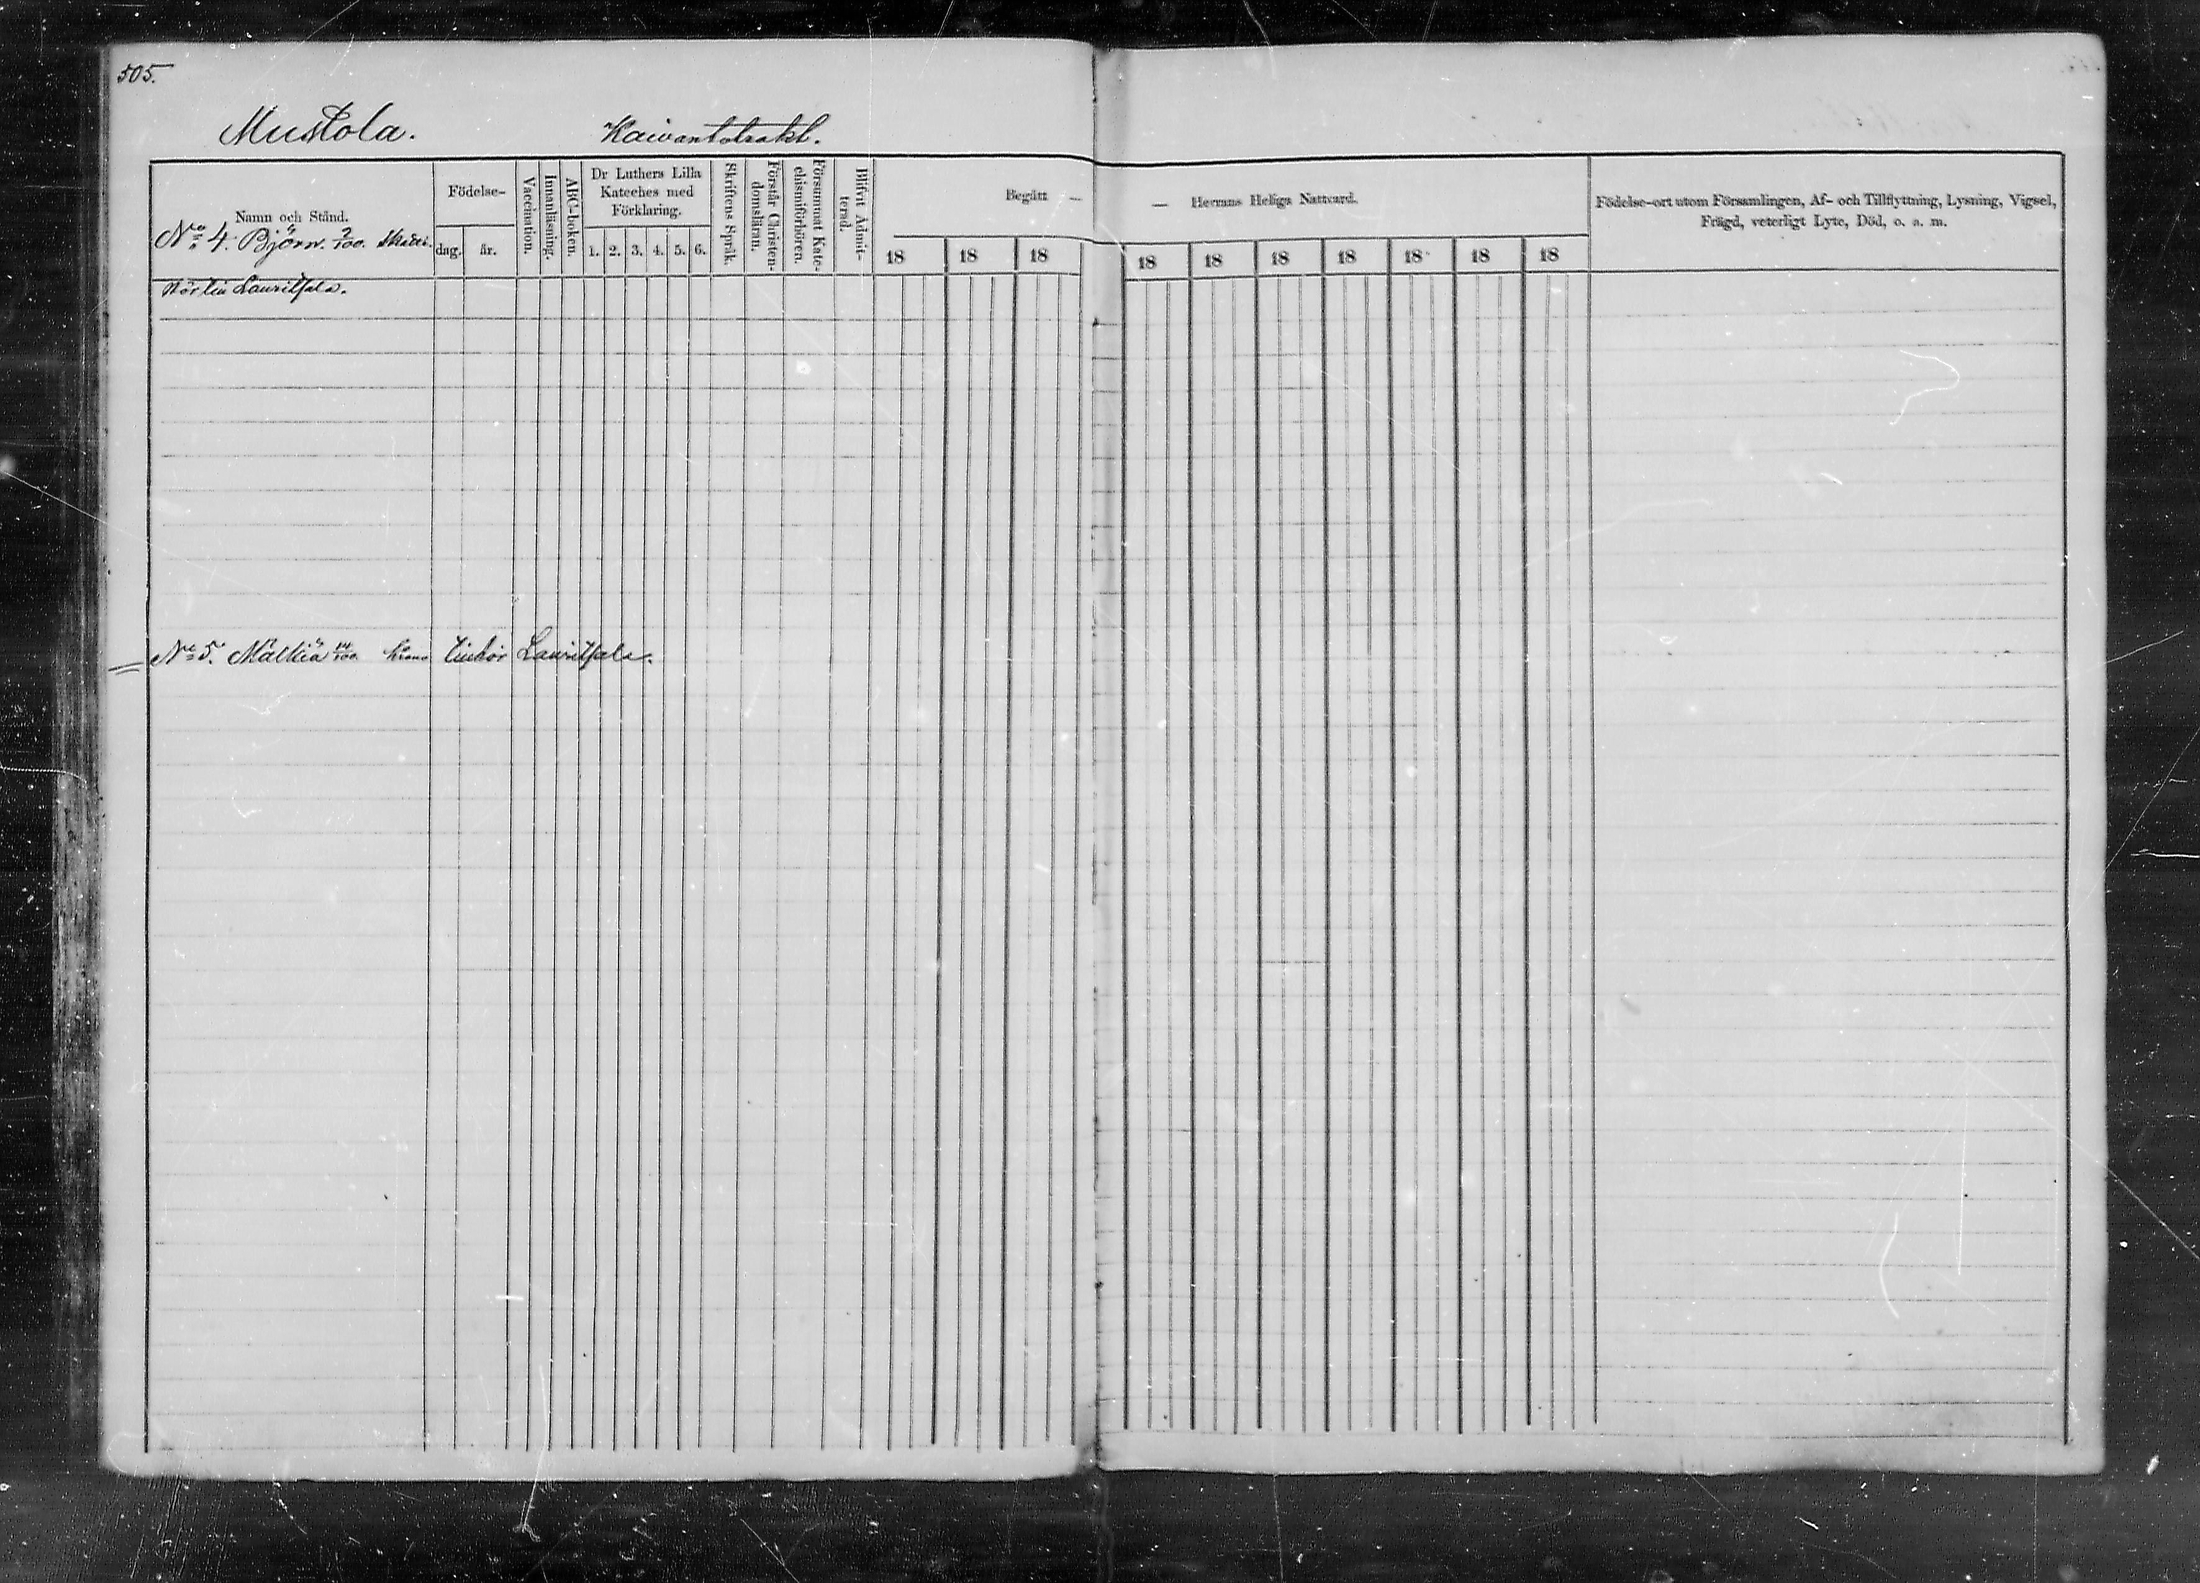 505.
Mustola. Kaivantotrakt.
Namn och Stånd.
Födelse-
dag. år.
Vaccination.
Innanläsning.
ABC-boken.
Dr Luthers Lilla
Kateches med
Förklaring.
1. 2. 3. 4. 5. 6.
Skriftens Språk.
Förstår Christen-
domsläran.
Försummat Kate-
chismiförhören.
Blifvit Admit-
terad.
Begått —
18 18 18
— Herrans Heliga Nattvard.
18 18 18 18 18 18 18
Födelse-ort utom Församlingen, Af- och Tillflyttning, Lysning, Vigsel,
Frägd, veterligt Lyte, Död, o. a. m.
No 4. Björn.
Lauritsala.
No 5. Mälkiä Lauritsala.